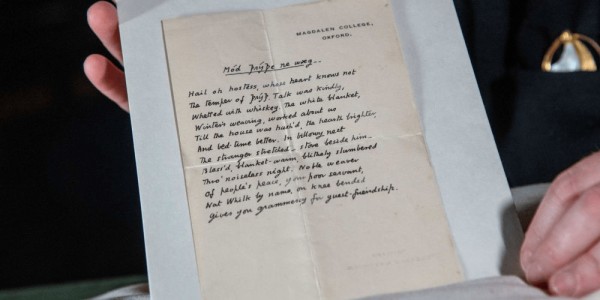 MAGDALEN COLLEGE,
OXFORD.
Mód Þrýþe ne wæg...
Hail oh hostess, whose heart knows not
The temper of Þrýþ. Talk was kindly,
Whetted with whiskey. The white blanket,
Winter's weaving, worked about us
Till the house was hush'd, the hearth brighter,
And bed-time better. In billowy nest
The stranger stretched – stove beside him –
Bless'd, blanket-warm, blithely slumbered
Thro' noiseless night. Noble weaver
Of people's peace, your poor servant,
Nat Whilk by name, on knee bended
Gives you grammercy for guest-friendship.